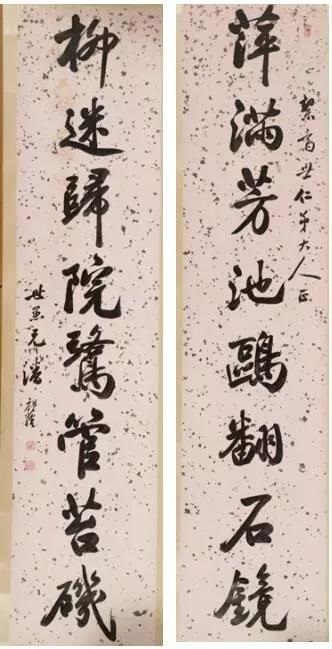 世仁弟大人正
萍滿芳池鷗翻石鏡
柳迷歸院鷺管苔磯
世愚兄潘祖蔭